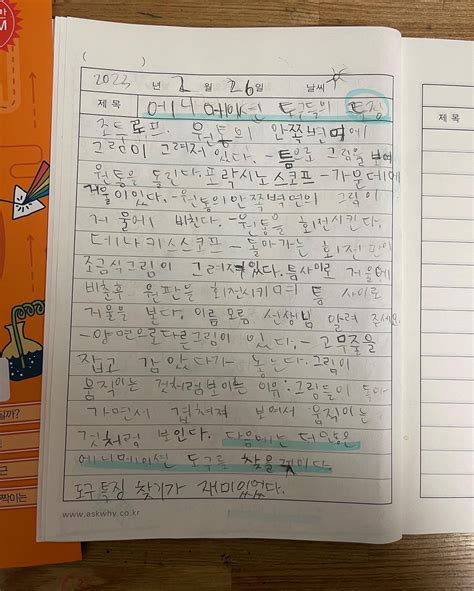 ( )
2023 년 2 월 26일 날씨
제 목 에니메이션 도구들의 특징
조투로프. 원통의 안쪽벽면에
그림이 그려져 있다. - 틈으로 그림을 보며
원통을 돌린다. 프락시노스코프 - 가운데에
거울이 있다. - 원통의 안쪽벽면의 그림이
거울에 비친다. - 원통을 회전시킨다.
페나키스스코프 - 돌아가는 회전판에
조금식 그림이 그려져있다. 틈사이로 거울에
비춘후 원판을 회전시키며 틈 사이로
거울을 보다. 이름 모름. 선생님 알려 주세요.
- 양면으로 다른그림이 있다. - 고무줄을
잡고 감았다가 놓는다. 그림이
움직이는 것처럼보이는 이유: 그림들이 돌아
가면서 겹쳐져 보여서 움직이는
것처럼 보인다. 다음에는 더 많은
에니메이션 도구를 찾을 것이다.
도구특징 찾기가 재미있었다.
www.askwhy.co.kr
제 목
짝이는